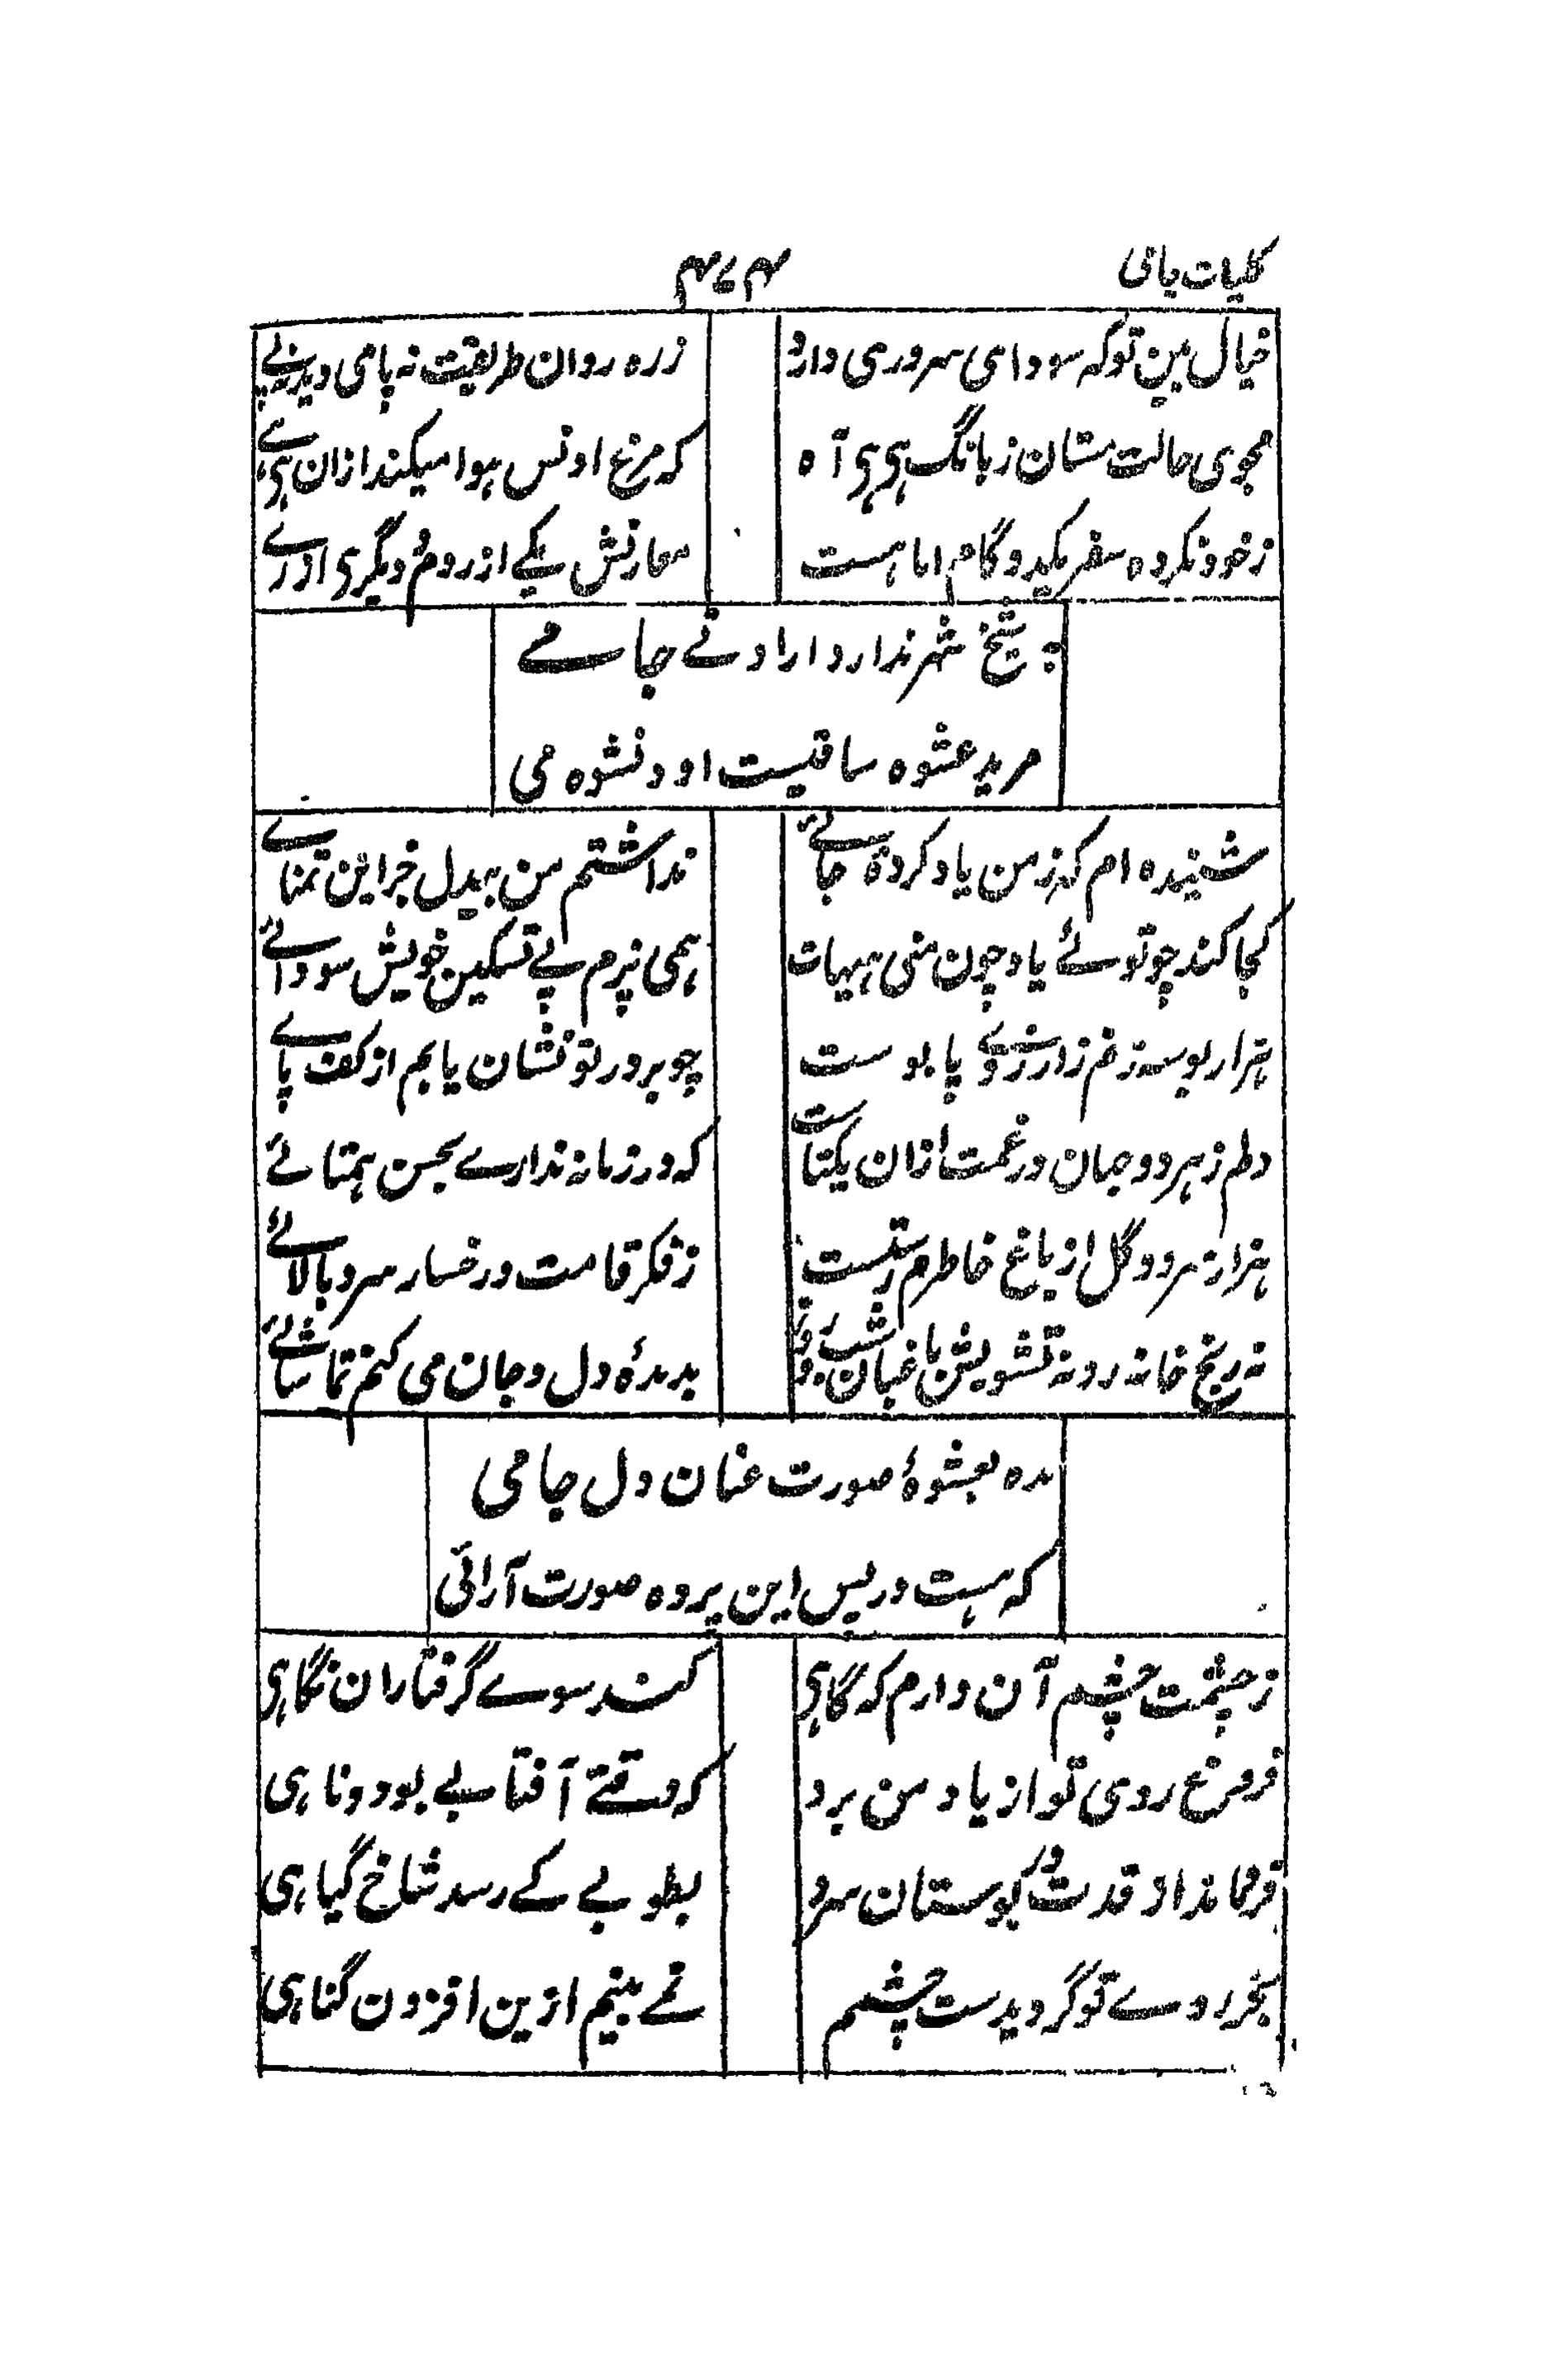 کلیات جامی
۴۷۴
خیال بین توکه سودای سروری دارد
زره روان طریقت نه پامی دیدنه پے
مجوی حالت مستان زبانگ ہی ہی آه
که مرغ اونس ہوا میکند ازان ہی ہے
زخود نکرده سفر یکدو گام اما ہست
معارفش یکے از روم و دیگری از رے
به شیخ شہر ندارد ارادتے جامے
مرید عشوه ساقیست او و نشوه می
شنیده ام که زمن یاد کردۂ جائے
نداشتم من بیدل جز این تمنائے
کجا کند چو توئے یاد چون منی ہیہات
ہمی پزم پے تسکین خویش سودائے
ہزار بوسه زنم ز آرزوے پا بوست
چو بر در تو نشان یابم از کف پاے
دلم زہر دو جہان در غمت ازان یکتاست
که در زمانه ندارے بحسن ہمتائے
ہزار سرو و گل از باغ خاطرم رستست
ز فکر قامت و رخسار سرو بالائے
نه رنج خانه رو نه تشویش باغبان شب و روز
بدیدۂ دل و جان می کنم تماشائے
مده بعشوۂ صورت عنان دل جامی
که ہست در پس این پرده صورت آرائی
ز چشمت چشم آن دارم که گاہی
کند سوے گرفتاران نگاہی
فروغ روی تو از یاد من برد
که وقتے آفتابے بود و ماہی
فرو ماند از قدت در بوستان سرو
بطوبے کے رسد شاخ گیاہی
بجز روے تو گر دیدست چشمم
نمے بینم ازین افزون گناہی